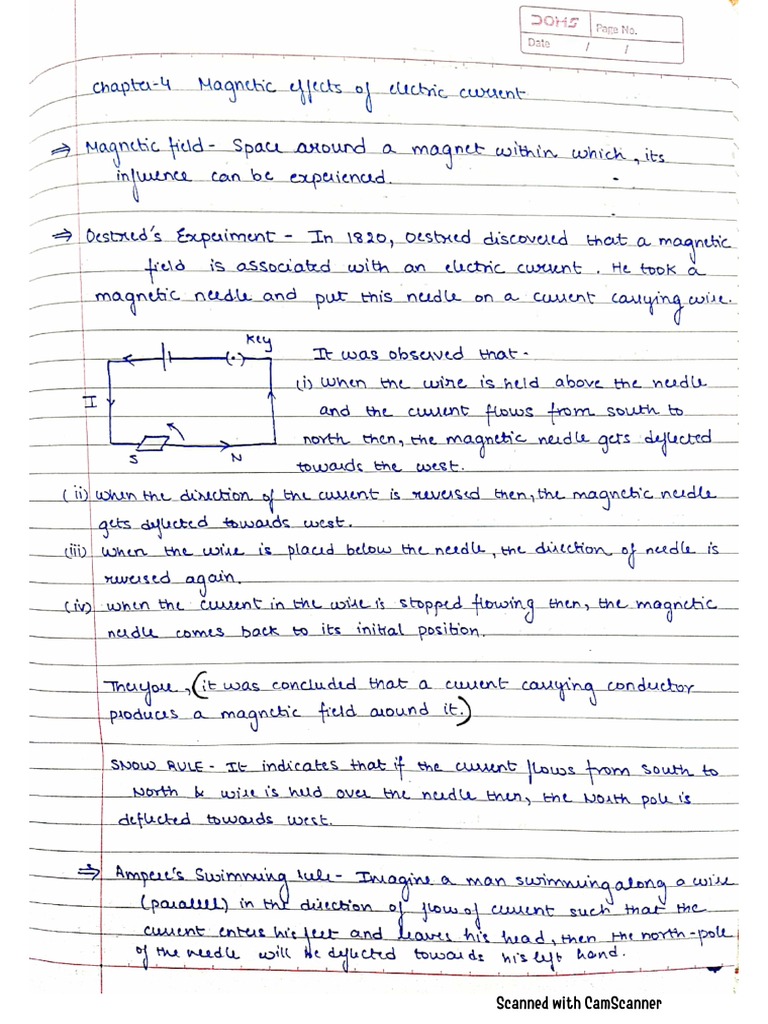 DOHS
Page No.
Date / /
Chapter-4 Magnetic effects of electric current
⇒ Magnetic field - Space around a magnet within which, its
influence can be experienced.
⇒ Oestred's Experiment - In 1820, Oestred discovered that a magnetic
field is associated with an electric current. He took a
magnetic needle and put this needle on a current carrying wire.
Key
I
S
N
It was observed that -
(i) when the wire is held above the needle
and the current flows from south to
north then, the magnetic needle gets deflected
towards the west.
(ii) when the direction of the current is reversed then, the magnetic needle
gets deflected towards west.
(iii) when the wire is placed below the needle, the direction of needle is
reversed again.
(iv) when the current in the wire is stopped flowing then, the magnetic
needle comes back to its initial position.
Therefore, (it was concluded that a current carrying conductor
produces a magnetic field around it.)
SNOW RULE - It indicates that if the current flows from south to
North & wire is held over the needle then, the North pole is
deflected towards west.
⇒ Ampere's Swimming rule - Imagine a man swimming along a wire
(parallel) in the direction of flow of current such that the
current enters his feet and leaves his head, then the north-pole
of the needle will be deflected towards his left hand.
Scanned with CamScanner